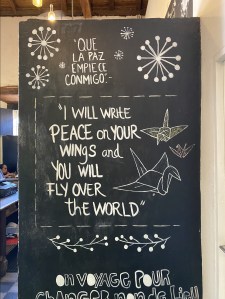 "QUE
LA PAZ
EMPIECE
CONMIGO".-
"I WILL WRITE
PEACE on YOUR
WINGS and
YOU WILL
FLY OVER
the WORLD"
on VOYAGE POUR
CHANGER non de LIEU